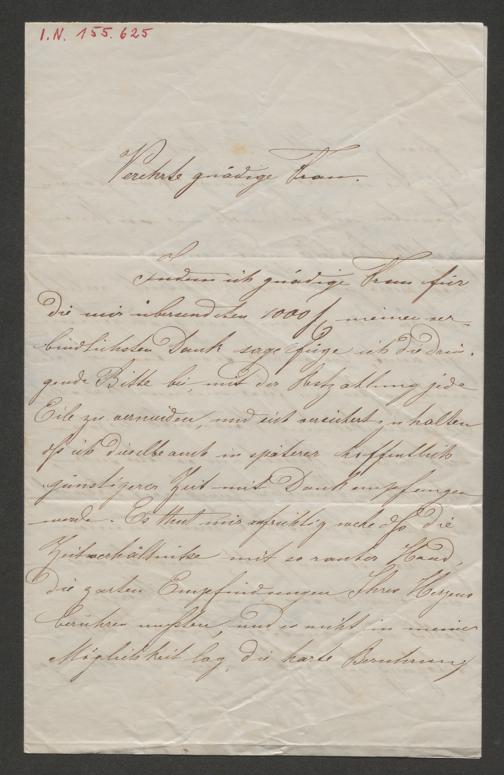 I.N. 155.625
Verehrte gnädige Frau.
Indem ich gnädige Frau für
die mir übersendeten 1000 f meinen ver-
bindlichsten Dank sage füge ich die drin-
gende Bitte bei, mit der Restzahlung jede
Eile zu vermeiden, und sich versichert zu halten
dß ich dieselbe auch in späterer hoffentlich
günstigerer Zeit mit Dank empfangen
werde. Es thut mir aufrichtig wehe dß die
Zeitverhältniße mit so rauher Hand,
die zarten Empfindungen Ihres Herzens
berühren mußten, und es nicht in meiner
Möglichkeit lag, die harte Berührung